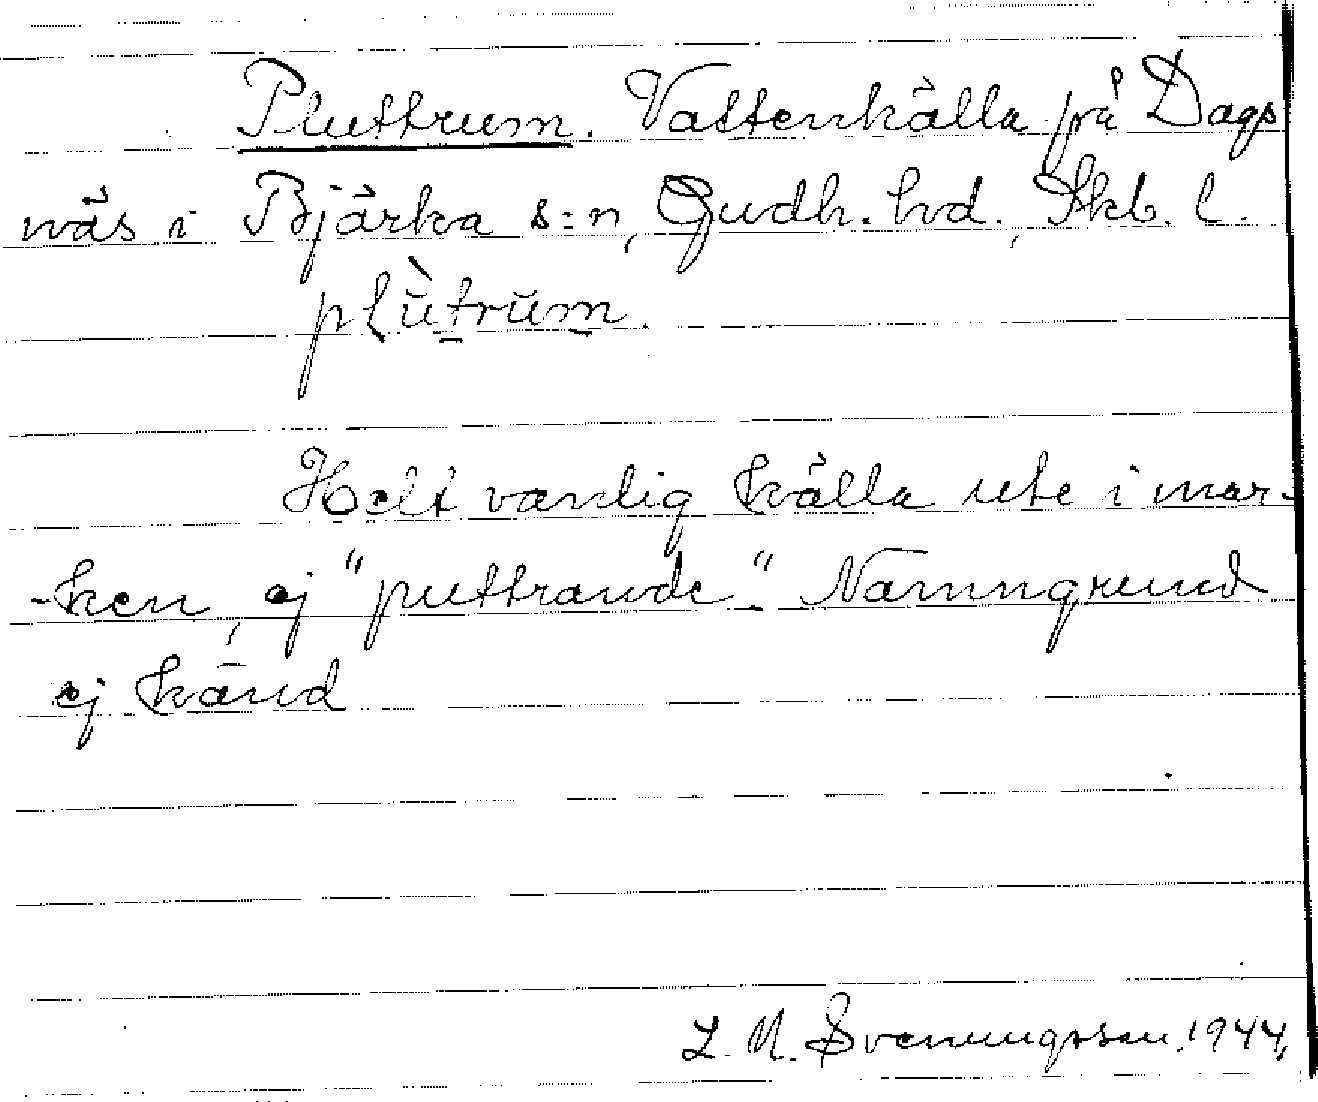 Pluttrum. Vattenkälla på Dags
näs i Bjärka s:n, Gudh. hd., Skb. l.
plùtrŭm.
Helt vanlig källa ute i mar-
-ken, ej "puttrande". Namngrund
ej känd
L. M. Svenungsson. 1944.